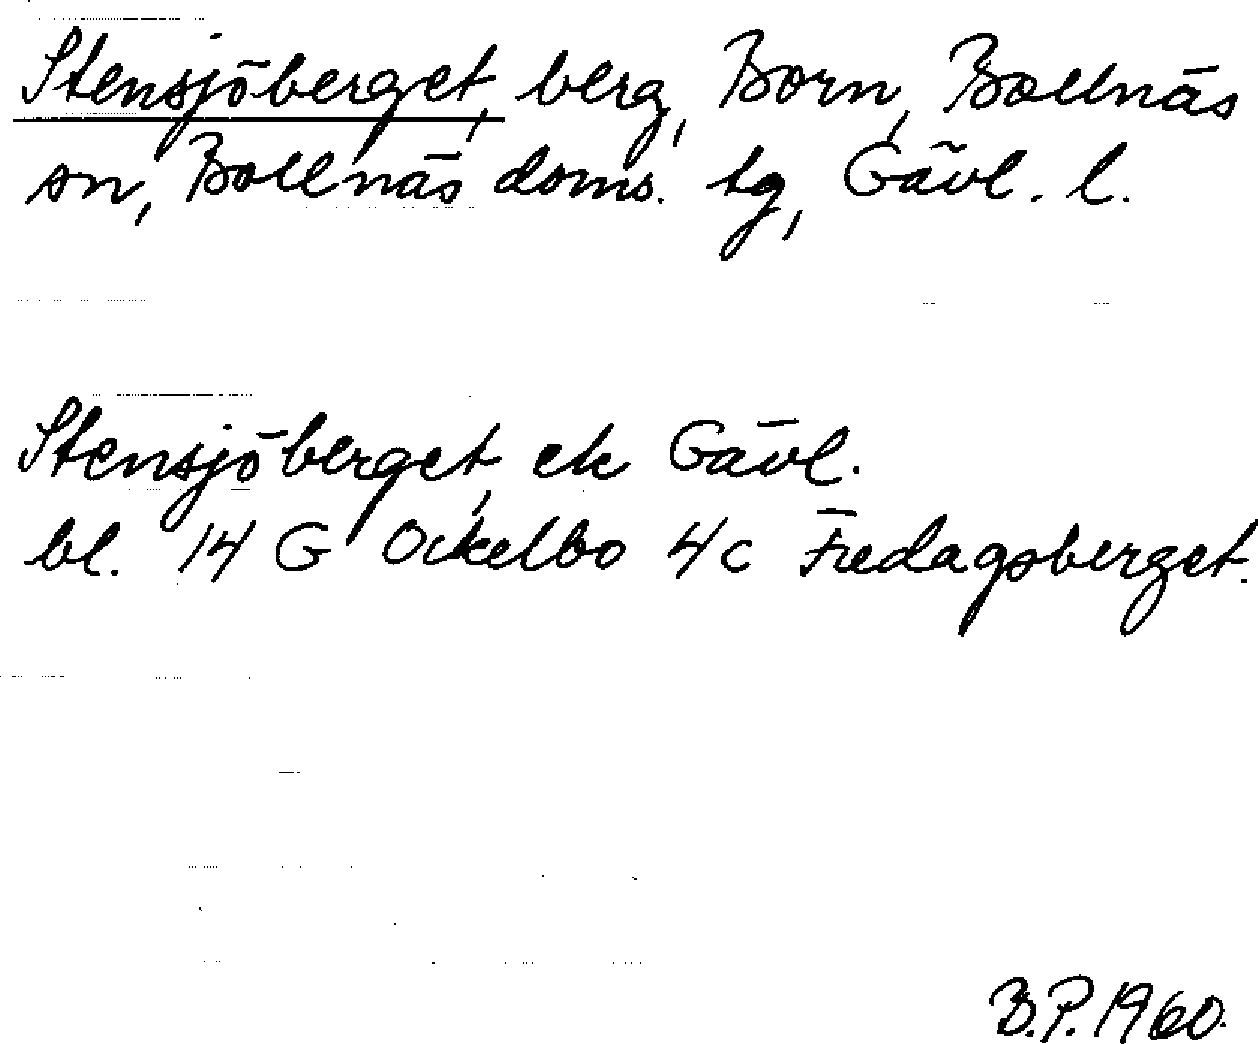 Stensjöberget, berg, Born, Bollnäs
sn, Bollnäs doms. tg, Gävl. l.
Stensjöberget, ek Gävl.
bl. 14 G Ockelbo 4c Fredagsberget.
B.P. 1960.